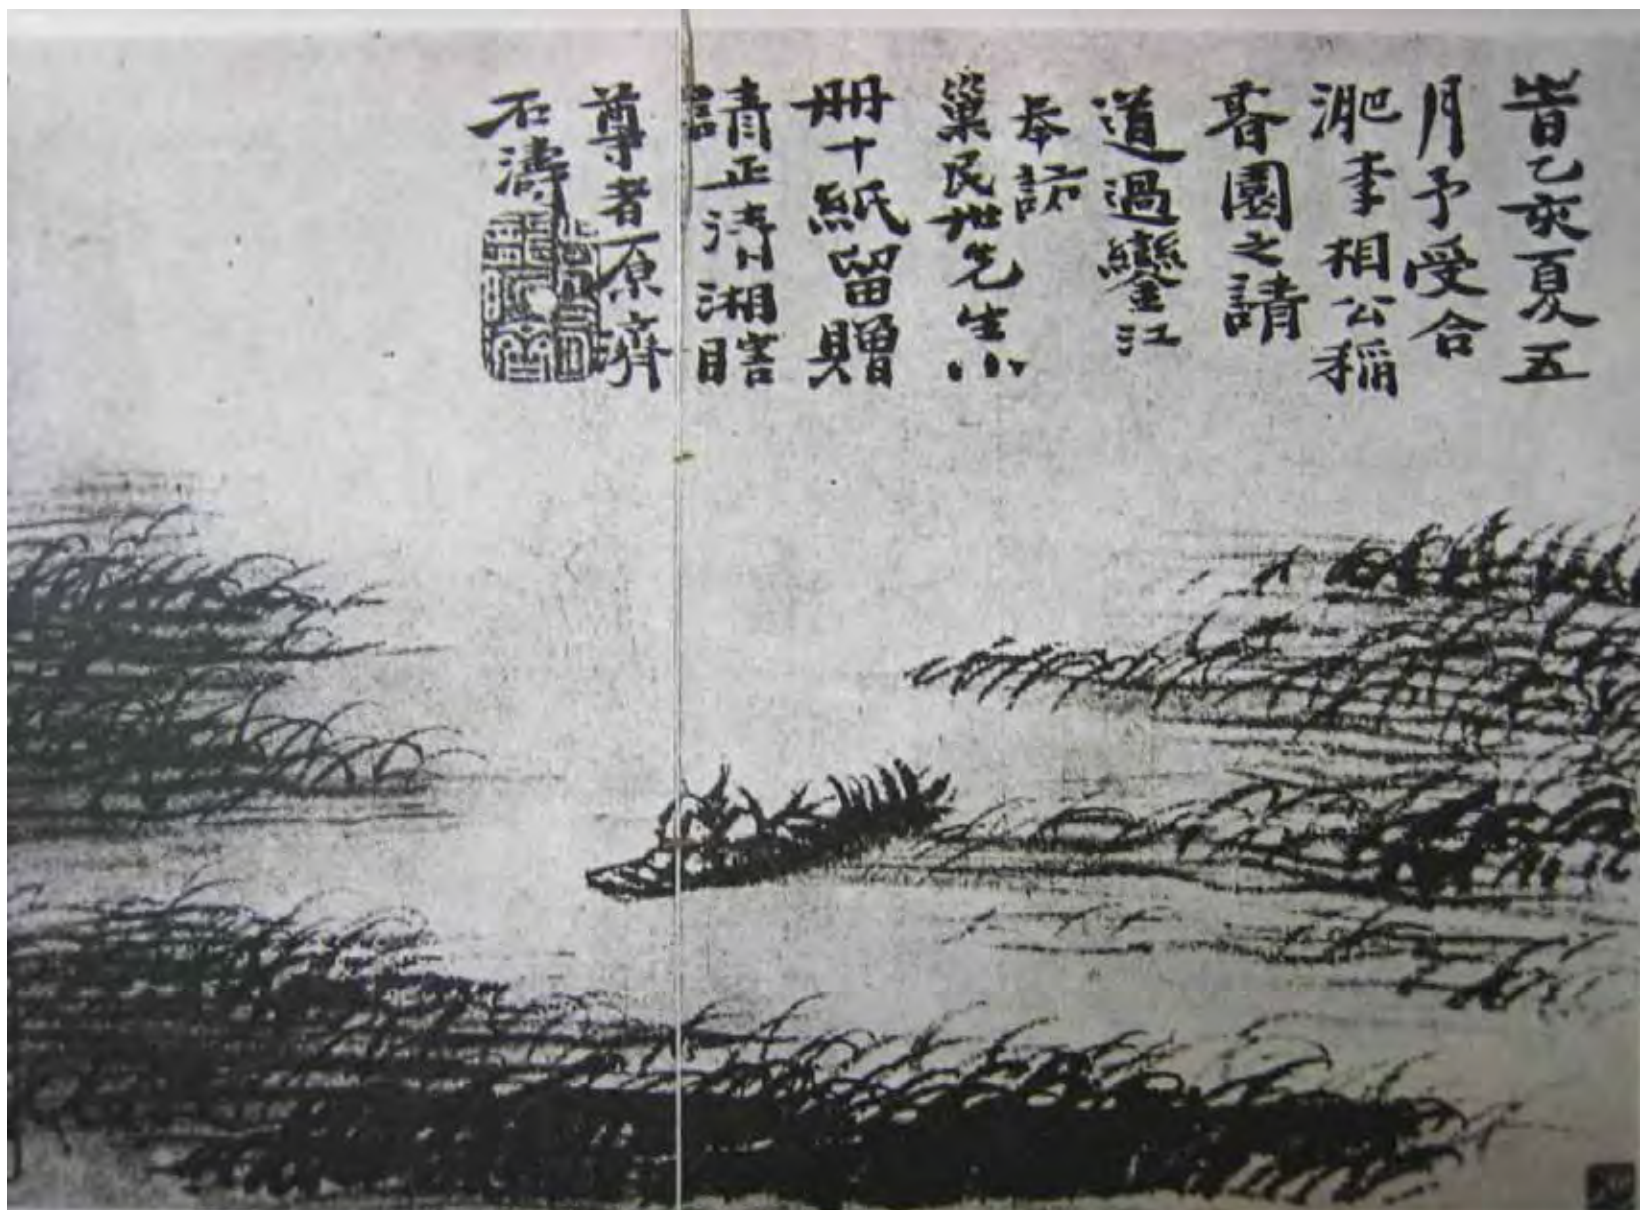 旹乙亥夏五
月予受合
淝李相公稻
香園之請
道過鑾江
奉訪
巢民世先生小
册十紙留贈
請正清湘瞎
尊者原濟
石濤